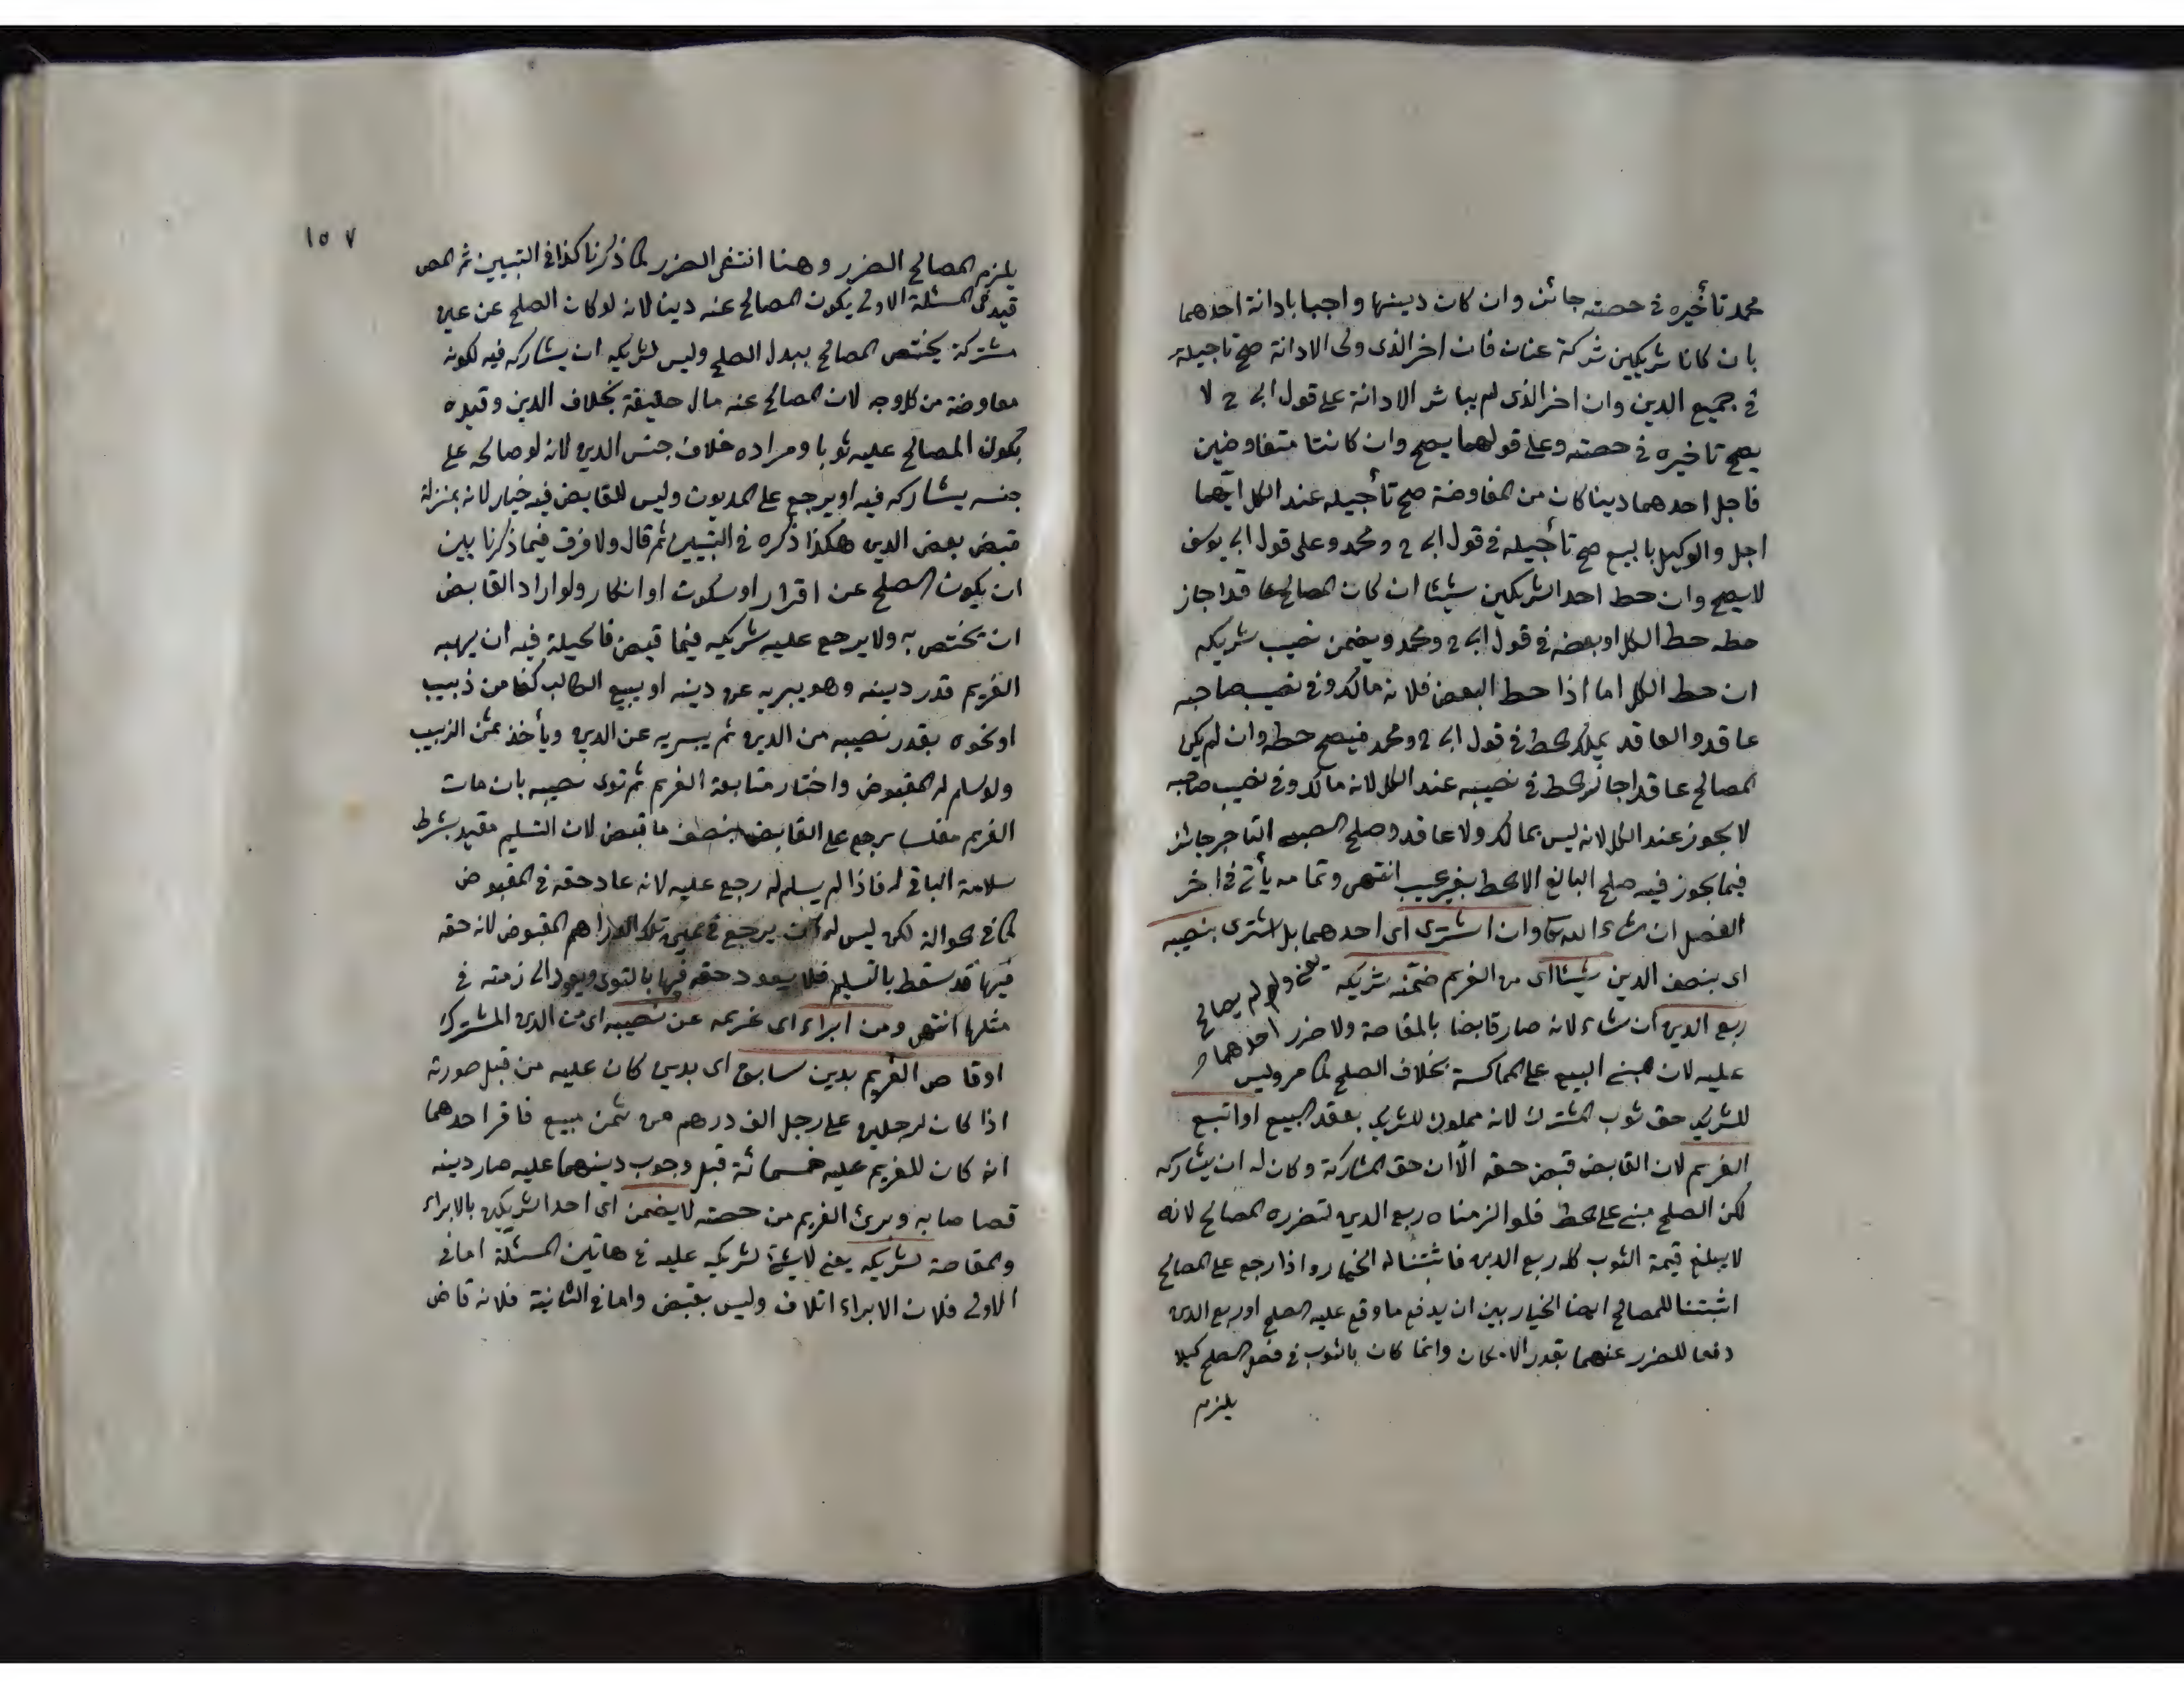 محمد تأخيره في حصته جائز وان كان دينها واجبا بادانة احدهما
بان كانا شريكين شركة عنان فان اخر الذى ولى الادانة صح تاجيله
في جميع الدين وان اخر الذى لم يباشر الادانة على قول ابى ح لا
يصح تاخيره في حصته وعلى قولهما يصح وان كانتا متفاوضين
فاجل احدهما دينا كان من المفاوضة صح تأجيله عند الكل ايهما
اجل والوكيل بالبيع صح تأجيله في قول ابى ح ومحمد وعلى قول ابى يوسف
لا يصح وان حط احد الشريكين شيئا ان كان المصالح عاقدا جاز
حطه حط الكل او بعضه في قول ابى ح ومحمد ويضمن نصيب شريكه
ان حط الكل اما اذا حط البعض فلانه مالك وفي نصيب صاحبه
عاقد والعاقد يملك الحط في قول ابى ح ومحمد فيصح حطه وان لم يكن
المصالح عاقدا جاز الحط في نصيبه عند الكل لانه مالك وفي نصيب صاحبه
لا يجوز عند الكل لانه ليس بمالك ولا عاقد وصلح الصبى التاجر جائز
فيما يجوز فيه صلح البالغ الا الحط بغير عيب انتهى وتمامه يأتى في اخر
الفصل ان شاء الله تعا وان اشترى اى احدهما بل اشترى بنصيبه
اى بنصف الدين شيئا اى من الغريم ضمنه شريكه يعنى ولو لم يصالح
احدهما
ربع الدين ان شاء لانه صار قابضا بالمقاصة ولا ضرر
عليه لان مبنى البيع على المماكسة بخلاف الصلح كما مر وليس
للشريك حق ثوب المشترك لانه مملوك للشريك بعقد البيع او اتبع
الغريم لان القابض قبض حقه الا ان حق المشاركة وكان له ان يشاركه
لكن الصلح مبنى على الحط فلو الزمناه ربع الدين لتضرره المصالح لانه
لا يبلغ قيمة الثوب كله ربع الدين فاثبتنا له الخيار واذا رجع على المصالح
اثبتنا للمصالح ايضا الخيار بين ان يدفع ما وقع عليه الصلح او ربع الدين
دفعا للضرر عنهما بقدر الامكان وانما كان بالثوب في فصل الصلح كيلا
يلزم
١٥٧
يلزم المصالح الضرر وهنا انتفى الضرر لما ذكرنا كذا في التبيين ثم المص
قيد في المسئلة الاولى بكون المصالح عنه دينا لانه لو كان الصلح عن عين
مشتركة يختص المصالح ببدل الصلح وليس لشريكه ان يشاركه فيه لكونه
معاوضة من كل وجه لان المصالح عنه مال حقيقة بخلاف الدين وقيده
بكون المصالح عليه ثوبا ومراده خلاف جنس الدين لانه لو صالحه على
جنسه يشاركه فيه او يرجع على المديون وليس للقابض فيه خيار لانه بمنزلة
قبض بعض الدين هكذا ذكره في التبيين ثم قال ولا فرق فيما ذكرنا بين
ان يكون الصلح عن اقرار او سكوت او انكار ولو اراد القابض
ان يختص به ولا يرجع عليه شريكه فيما قبض فالحيلة فيه ان يهبه
الغريم قدر دينه وهو يبريه عن دينه او يبيع الطالب كفا من زبيب
او نحوه بقدر نصيبه من الدين ثم يبريه عن الدين ويأخذ ثمن الزبيب
ولو سلم له المقبوض واختار متابعة الغريم ثم توى نصيبه بان مات
الغريم مفلسا يرجع على القابض بنصف ما قبض لان التسليم مقيد بشرط
سلامة الباقي له فاذا لم يسلم له رجع عليه لانه عاد حقه في المقبوض
كما في الحوالة لكن ليس له ان يرجع في عين تلك الدراهم المقبوض لانه حقه
فيها قد سقط بالتسليم فلا يعود حقه فيها بالتوى ويعود الى ذمته في
مثلها انتهى ومن ابراء اى غريمه عن نصيبه اى من الدين المشترك
او قاص الغريم بدين سابق اى بدين كان عليه من قبل صورته
اذا كان لرجلين على رجل الف درهم من ثمن مبيع فاقر احدهما
انه كان للغريم عليه خمسمائة قبل وجوب دينهما عليه صار دينه
قصاصا به وبرئ الغريم من حصته لا يضمن اى احد الشريكين بالابراء
والمقاصة لشريكه يعنى لا شئ لشريكه عليه في هاتين المسئلة اما في
الاولى فلان الابراء اتلاف وليس بقبض واما في الثانية فلانه قاض